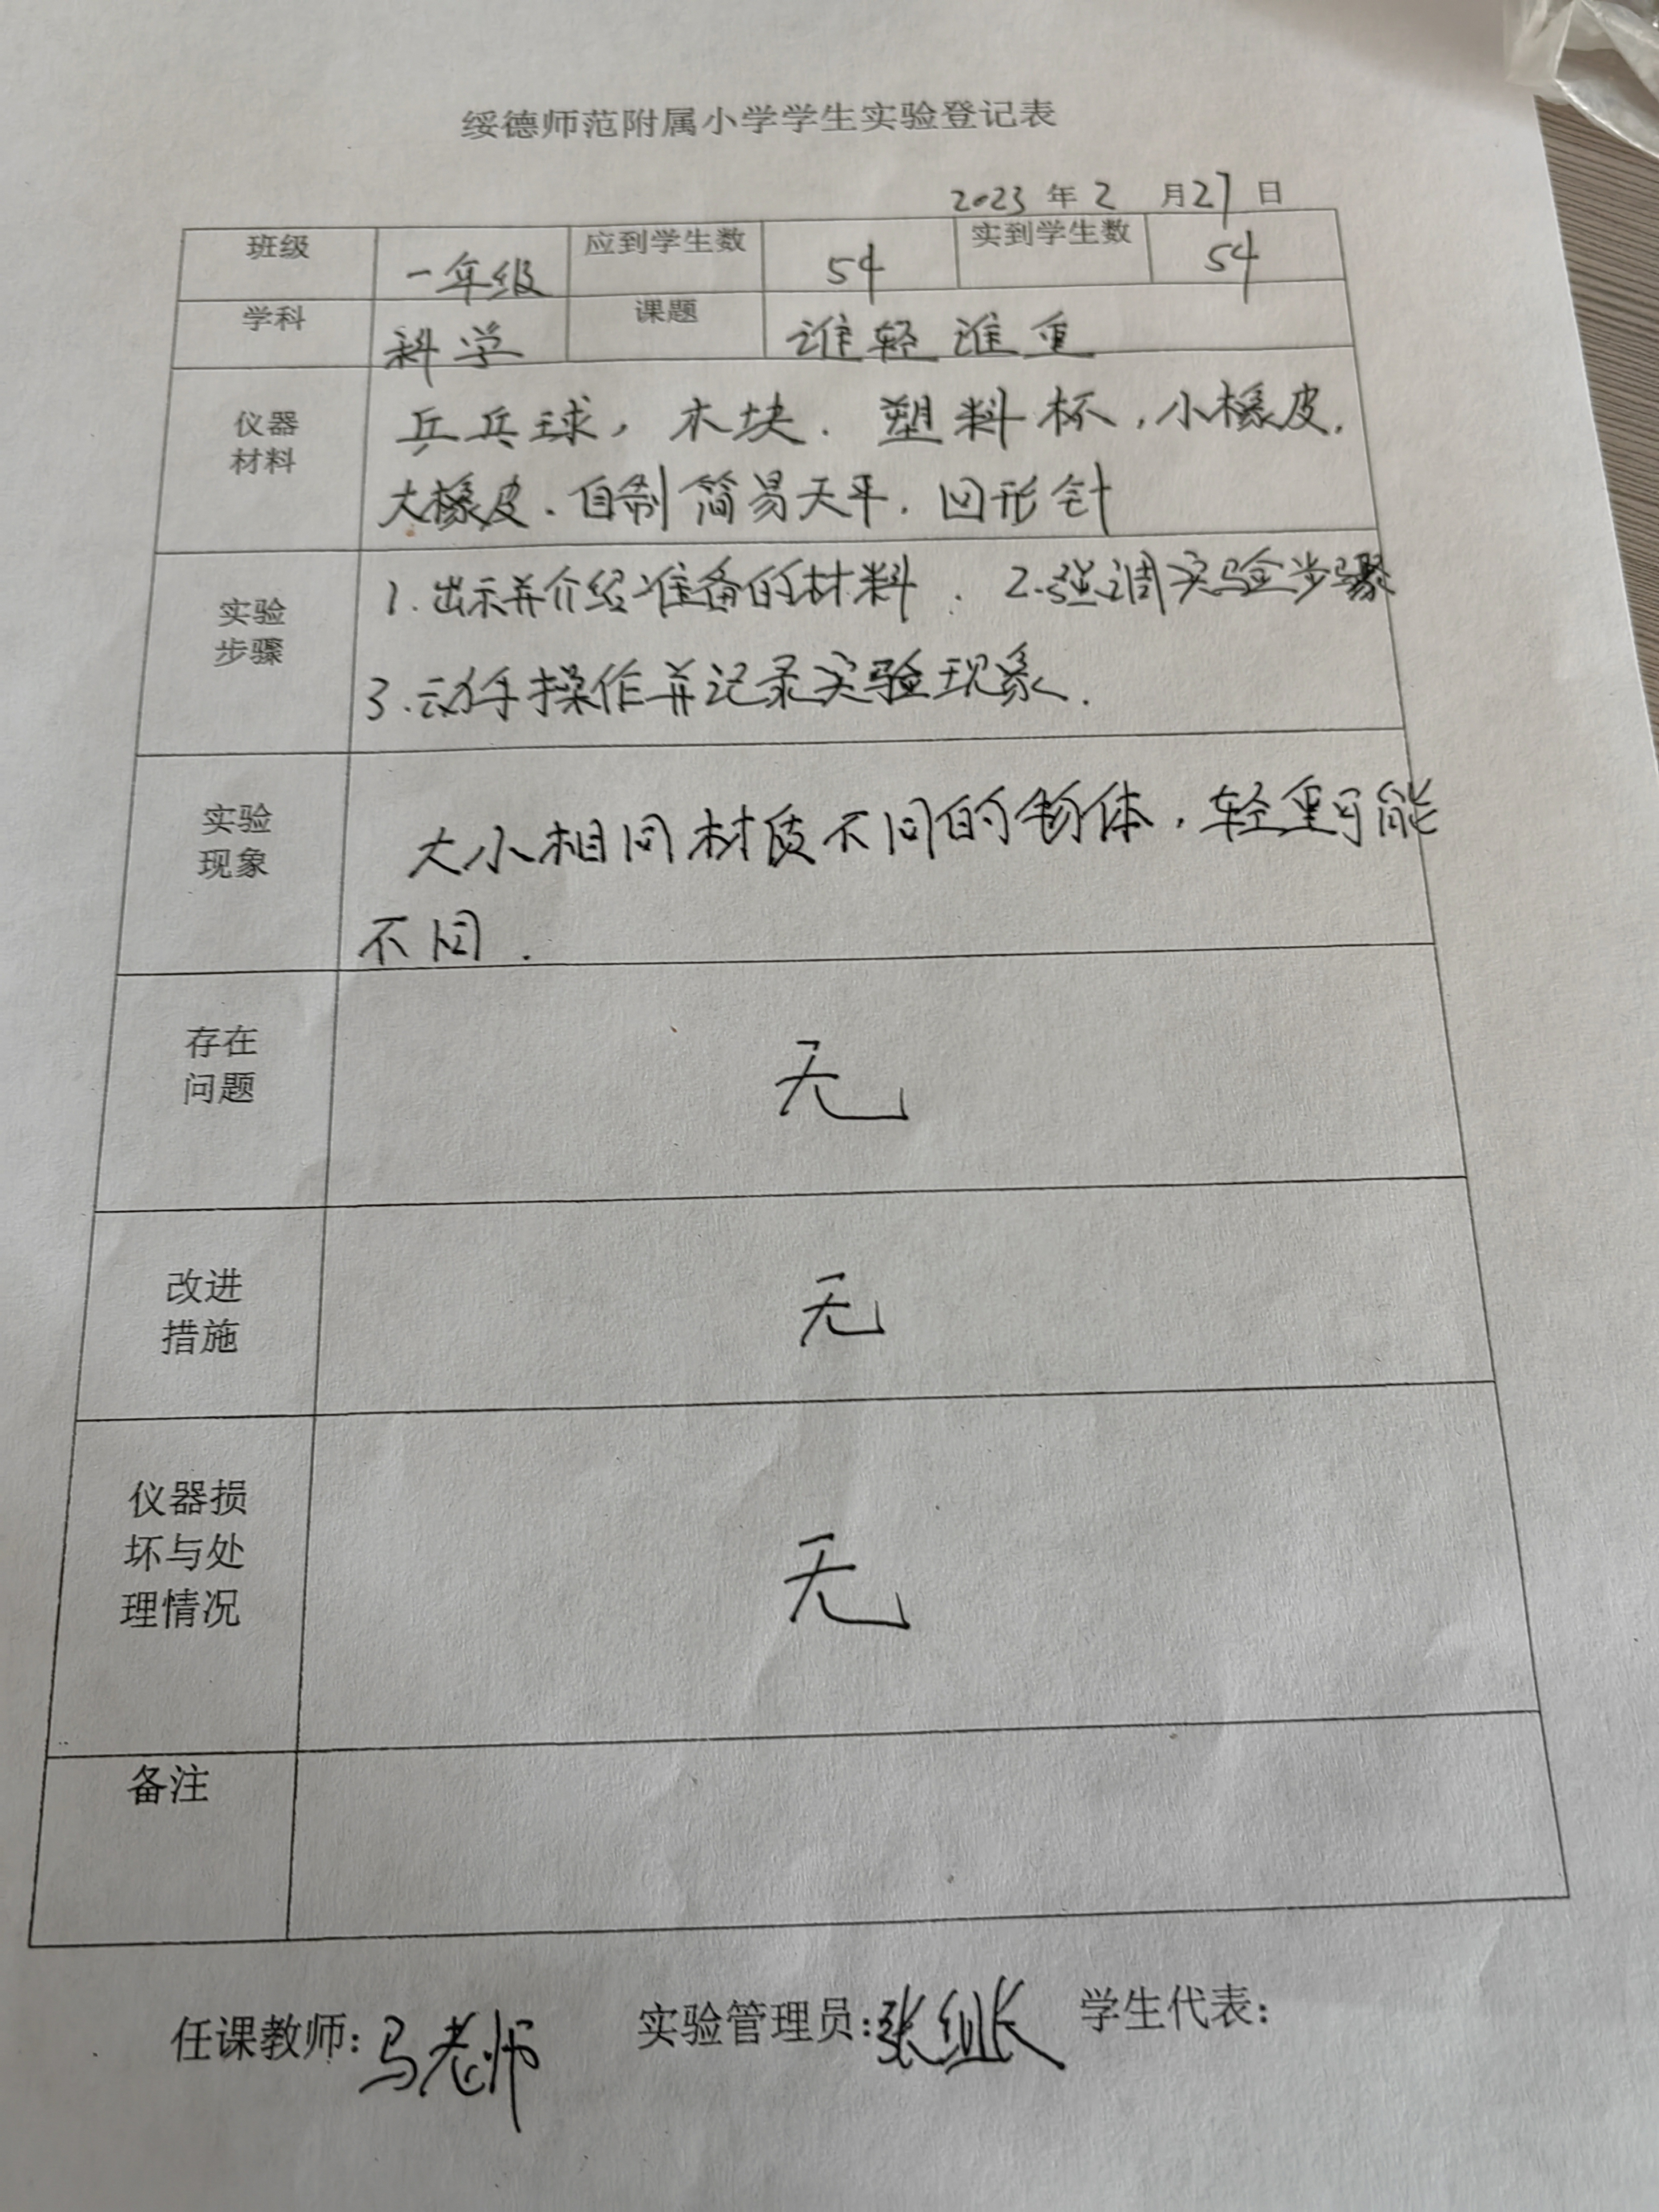 绥德师范附属小学学生实验登记表
2023 年 2 月 27 日
班级 一年级 应到学生数 54 实到学生数 54
学科 科学 课题 谁轻谁重
仪器材料 乒乓球，木块．塑料杯，小橡皮，
大橡皮．自制简易天平．回形针
实验步骤 1.出示并介绍准备的材料．2.强调实验步骤
3.动手操作并记录实验现象．
实验现象 大小相同材质不同的物体，轻重可能
不同．
存在问题 无
改进措施 无
仪器损坏与处理情况 无
备注
任课教师：马老师 实验管理员：张组长 学生代表：